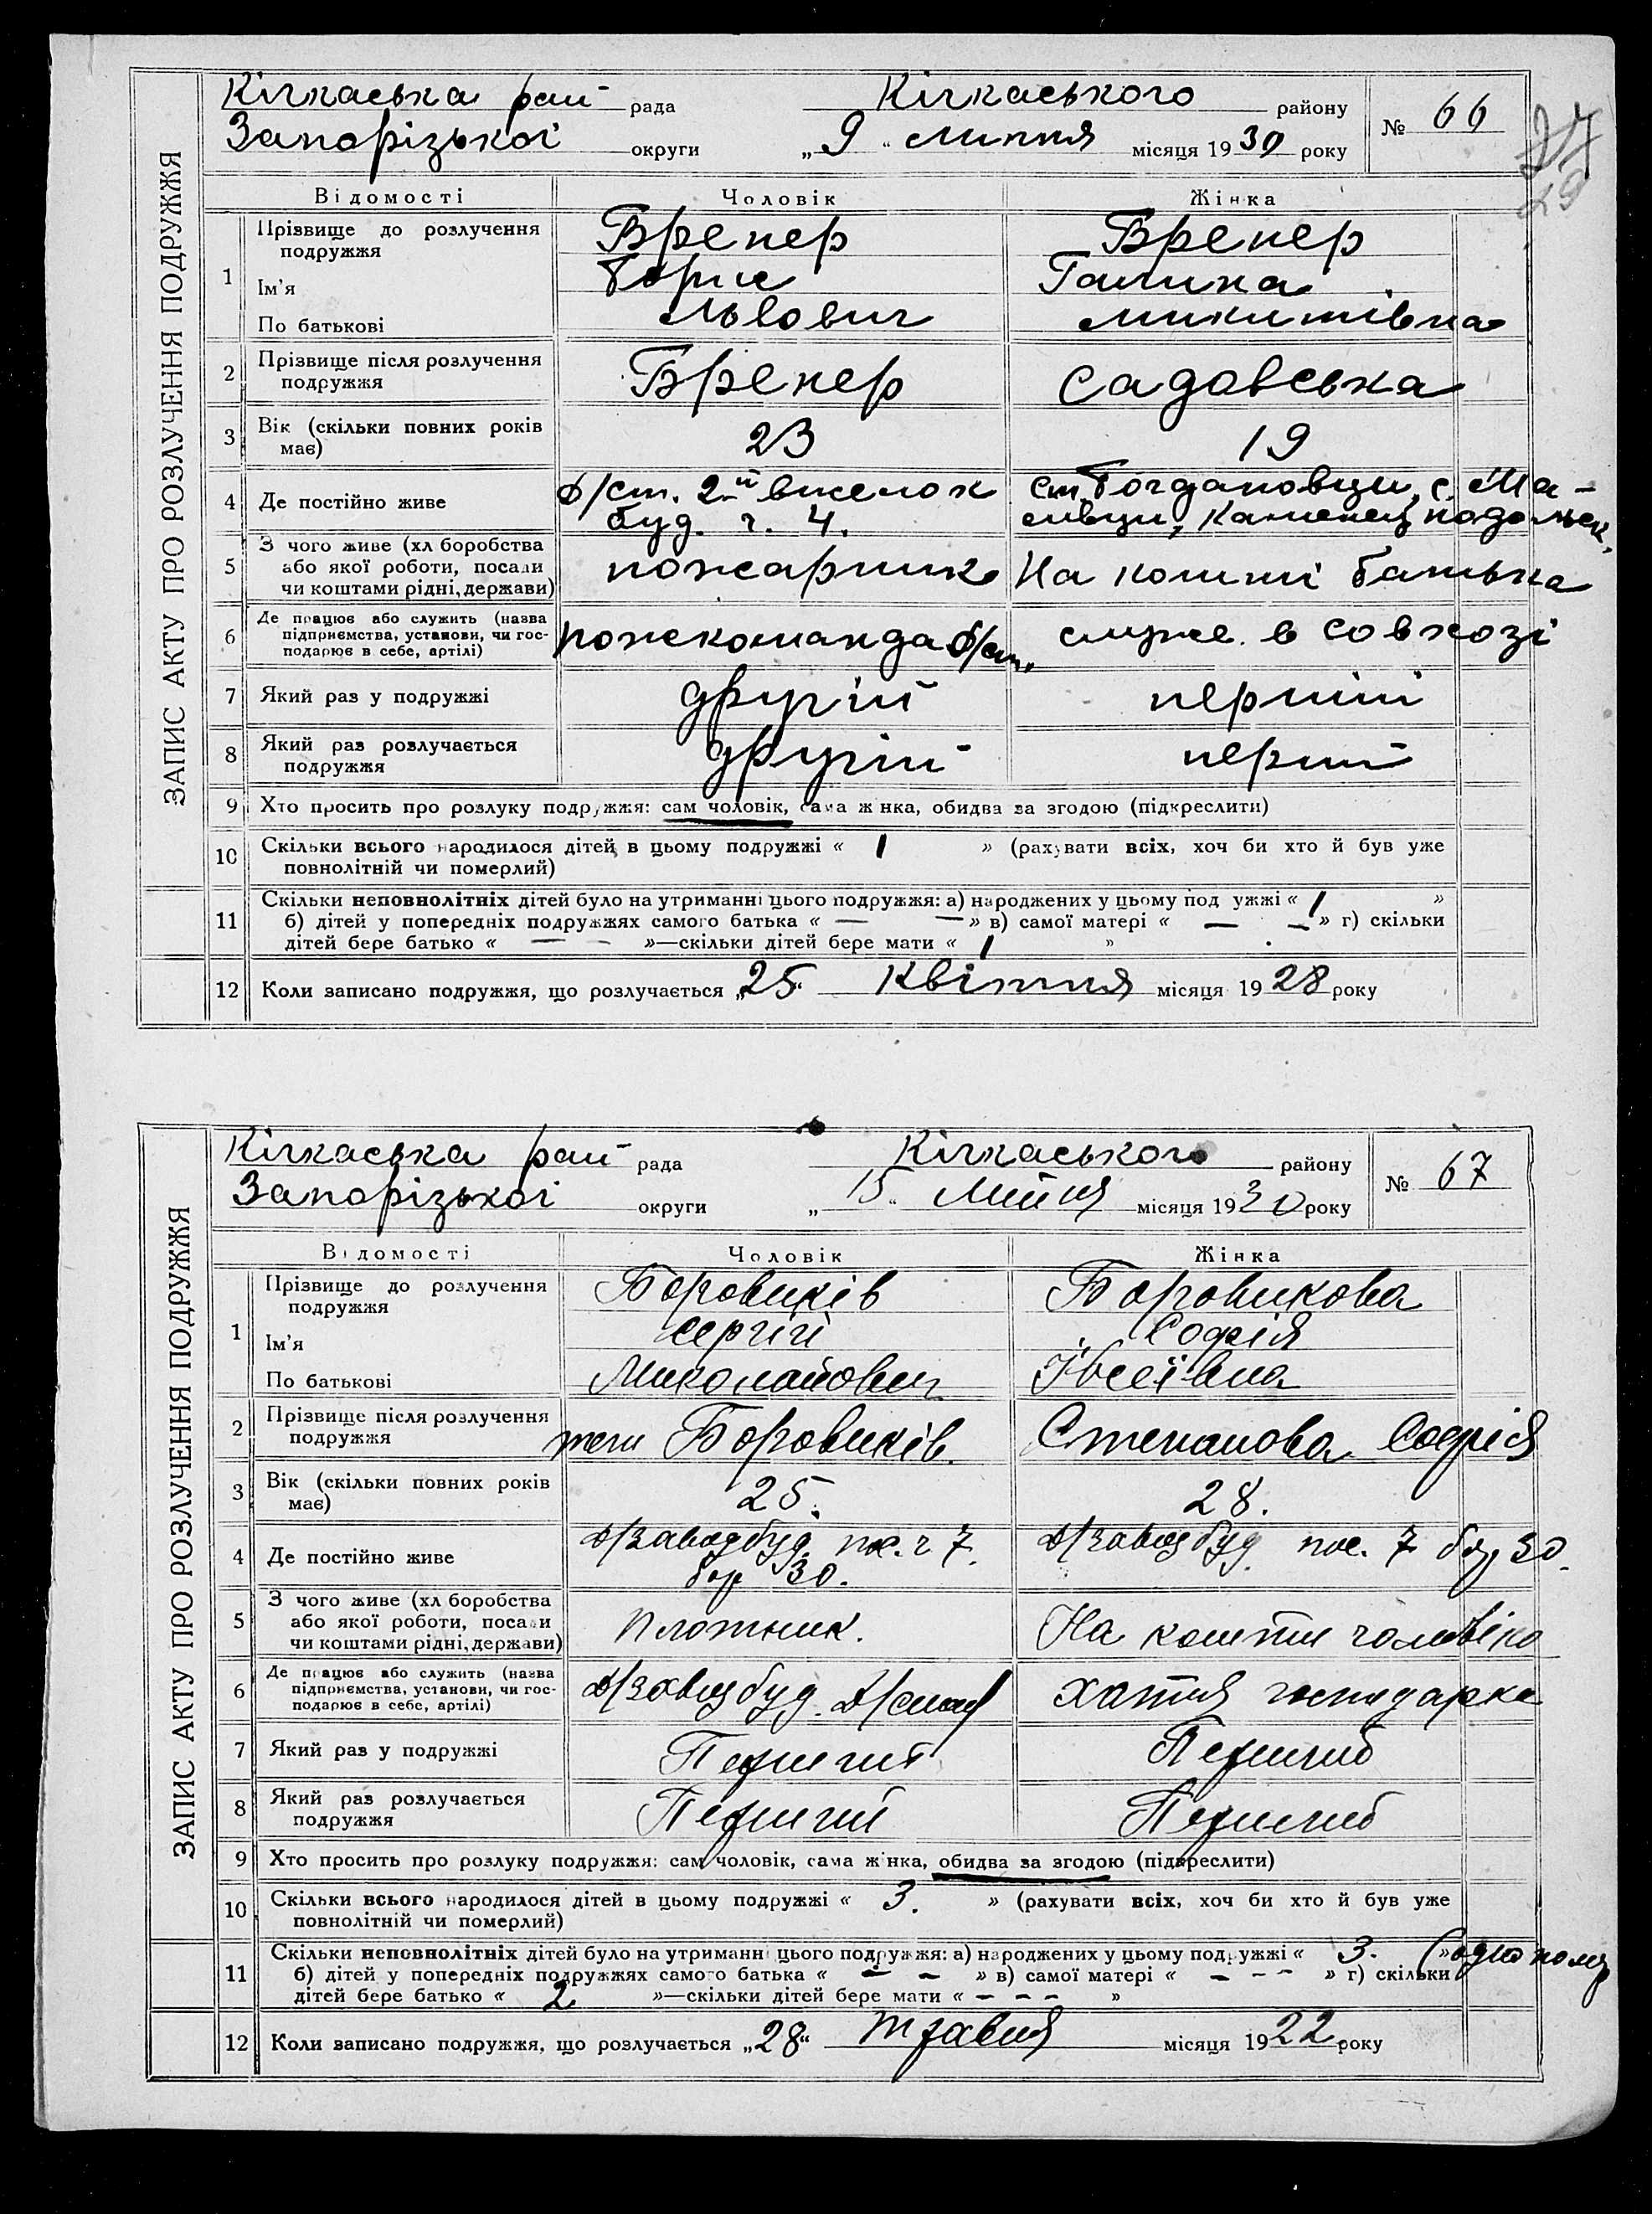 ЗАПИС АКТУ ПРО РОЗЛУЧЕННЯ ПОДРУЖЖЯ
Кічкаська рай рада Кічкаського району № 66
Запорізької округи „9“ липня місяця 1930 року
27
29
Відомості Чоловік Жінка
1 Прізвище до розлучення подружжя Бренер Бренер
Ім'я Борис Галина
По батькові Львович Микитівна
2 Прізвище після розлучення подружжя Бренер Садовська
3 Вік (скільки повних років має) 23 19
4 Де постійно живе Д/ст. 2-й виселок ст. Богдановци, с. Ма-
буд. ч. 4. сивци, Каменец подольск,
5 З чого живе (хліборобства або якої роботи, посади чи коштами рідні, держави) пожарник На кошти батька
6 Де працює або служить (назва підприємства, установи, чи господарює в себе, артілі) пожкоманда Д/ст. служ. в совхозі
7 Який раз у подружжі другий перший
8 Який раз розлучається подружжя другий перший
9 Хто просить про розлуку подружжя: сам чоловік, сама жінка, обидва за згодою (підкреслити)
10 Скільки всього народилося дітей в цьому подружжі « 1 » (рахувати всіх, хоч би хто й був уже
повнолітній чи померлий)
11 Скільки неповнолітніх дітей було на утриманні цього подружжя: а) народжених у цьому подружжі « 1 »
б) дітей у попередніх подружжях самого батька « — — » в) самої матері « — — » г) скільки
дітей бере батько « — — »—скільки дітей бере мати « 1 »
12 Коли записано подружжя, що розлучається „25“ Квітня місяця 1928 року
ЗАПИС АКТУ ПРО РОЗЛУЧЕННЯ ПОДРУЖЖЯ
Кічкаська рай рада Кічкаського району № 67
Запорізької округи „15“ місяця 1930 року
Відомості Чоловік Жінка
1 Прізвище до розлучення подружжя Боровиків Боровикова
Ім'я Сергій Софія
По батькові Миколайович
2 Прізвище після розлучення подружжя Боровиків. Степанова Софія
3 Вік (скільки повних років має) 25. 28.
4 Де постійно живе Д/Заводбуд. пос. ч 7. Д/Заводбуд пос. 7 бар 30.
бар 30.
5 З чого живе (хліборобства або якої роботи, посади чи коштами рідні, держави) Плотник. На кошти чоловіка
6 Де працює або служить (назва підприємства, установи, чи господарює в себе, артілі) Д/Заводбуд. хатня господарка
7 Який раз у подружжі Перший Перший
8 Який раз розлучається подружжя Перший Перший
9 Хто просить про розлуку подружжя: сам чоловік, сама жінка, обидва за згодою (підкреслити)
10 Скільки всього народилося дітей в цьому подружжі « 3. » (рахувати всіх, хоч би хто й був уже
повнолітній чи померлий)
11 Скільки неповнолітніх дітей було на утриманні цього подружжя: а) народжених у цьому подружжі « 3. »
б) дітей у попередніх подружжях самого батька « – – » в) самої матері « – – – » г) скільки
дітей бере батько « 2 »—скільки дітей бере мати « – – – »
12 Коли записано подружжя, що розлучається „28“ травня місяця 1922 року